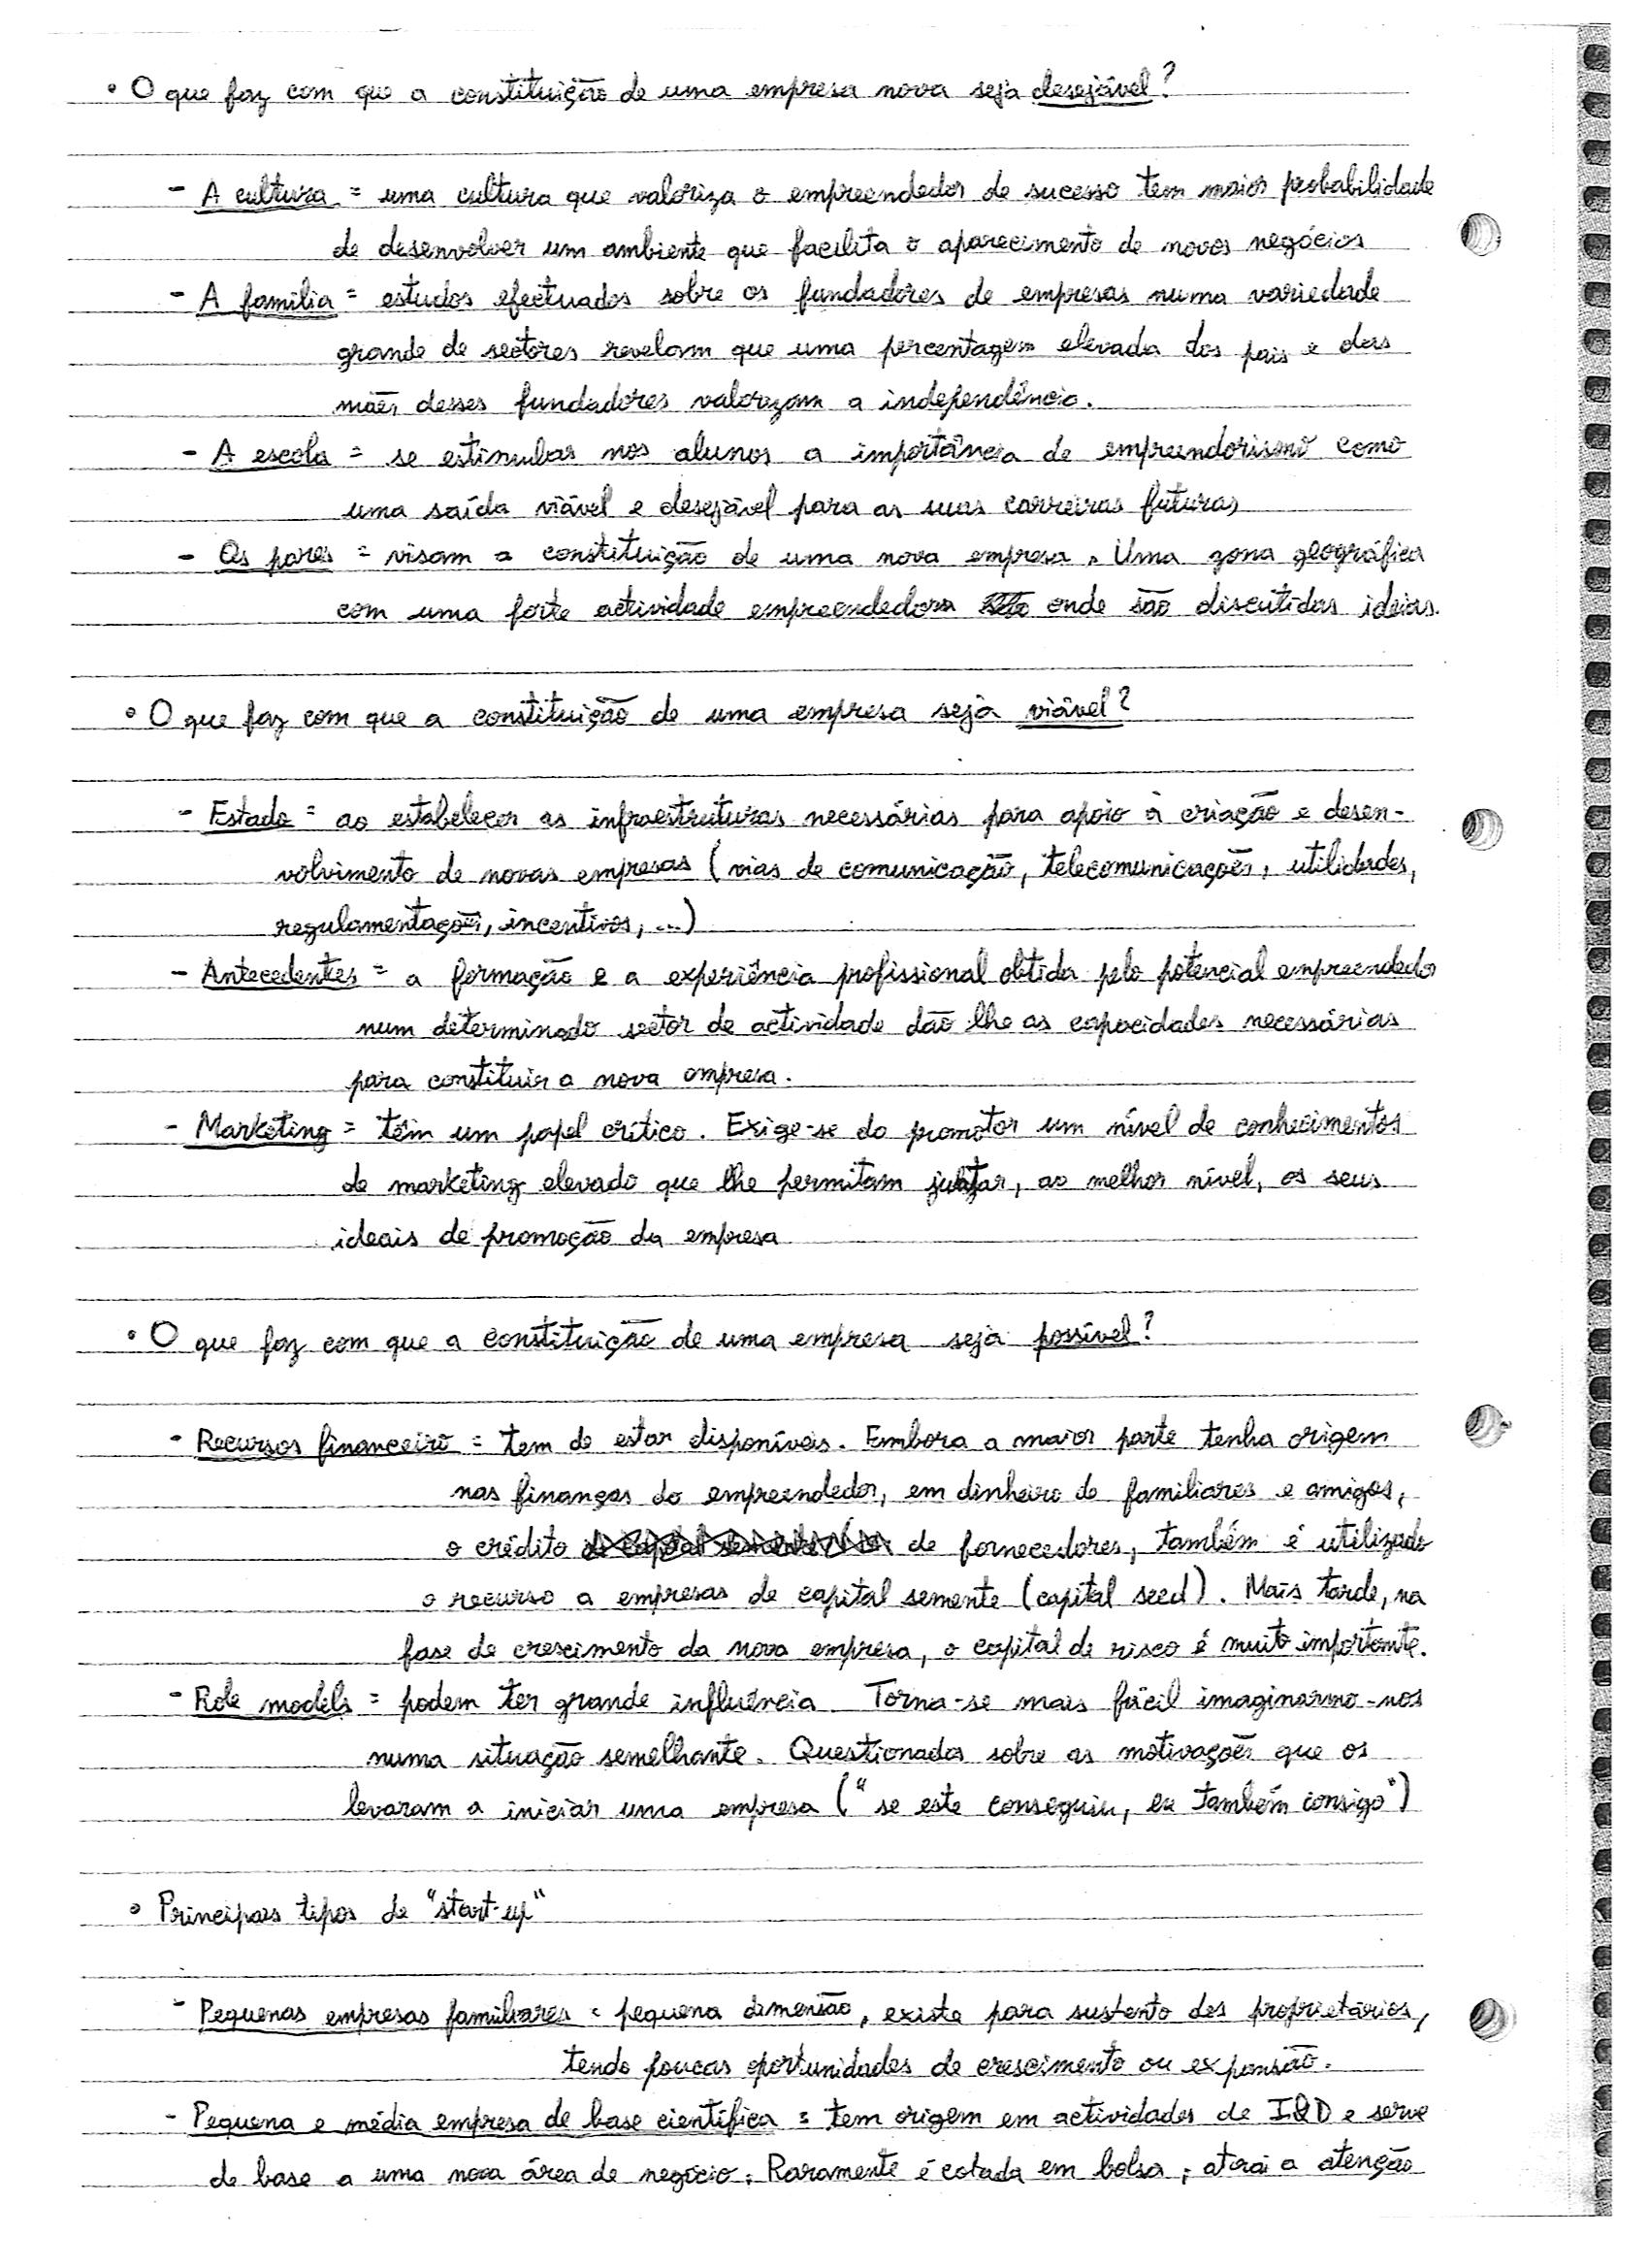 • O que faz com que a constituição de uma empresa nova seja desejável?
- A cultura = uma cultura que valoriza o empreendedor de sucesso tem maior probabilidade
de desenvolver um ambiente que facilita o aparecimento de novos negócios
- A família = estudos efectuados sobre os fundadores de empresas numa variedade
grande de sectores revelam que uma percentagem elevada dos pais e das
mães desses fundadores valorizam a independência.
- A escola = se estimular nos alunos a importância de empreendorismo como
uma saída viável e desejável para as suas carreiras futuras
- Os pares = visam a constituição de uma nova empresa. Uma zona geográfica
com uma forte actividade empreendedora onde são discutidas ideias.
• O que faz com que a constituição de uma empresa seja viável?
- Estado = ao estabelecer as infraestruturas necessárias para apoio à criação e desen-
volvimento de novas empresas (vias de comunicação, telecomunicações, utilidades,
regulamentações, incentivos, ...)
- Antecedentes = a formação e a experiência profissional obtida pelo potencial empreendedor
num determinado sector de actividade dão lhe as capacidades necessárias
para constituir a nova empresa.
- Marketing = têm um papel crítico. Exige-se do promotor um nível de conhecimentos
de marketing elevado que lhe permitam juntar, ao melhor nível, os seus
ideais de promoção da empresa
• O que faz com que a constituição de uma empresa seja possível?
- Recursos financeiro = tem de estar disponíveis. Embora a maior parte tenha origem
nas finanças do empreendedor, em dinheiro de familiares e amigos,
o crédito de fornecedores, também é utilizado
o recurso a empresas de capital semente (capital seed). Mais tarde, na
fase de crescimento da nova empresa, o capital de risco é muito importante.
- Role models = podem ter grande influência Torna-se mais fácil imaginarmo-nos
numa situação semelhante. Questionados sobre as motivações que os
levaram a iniciar uma empresa ("se este conseguiu, eu também consigo")
• Principais tipos de "start-up"
- Pequenas empresas familiares = pequena dimensão, existe para sustento dos proprietários,
tendo poucas oportunidades de crescimento ou expansão.
- Pequena e média empresa de base científica = tem origem em actividades de I&D e serve
de base a uma nova área de negócio. Raramente é cotada em bolsa; atrai a atenção